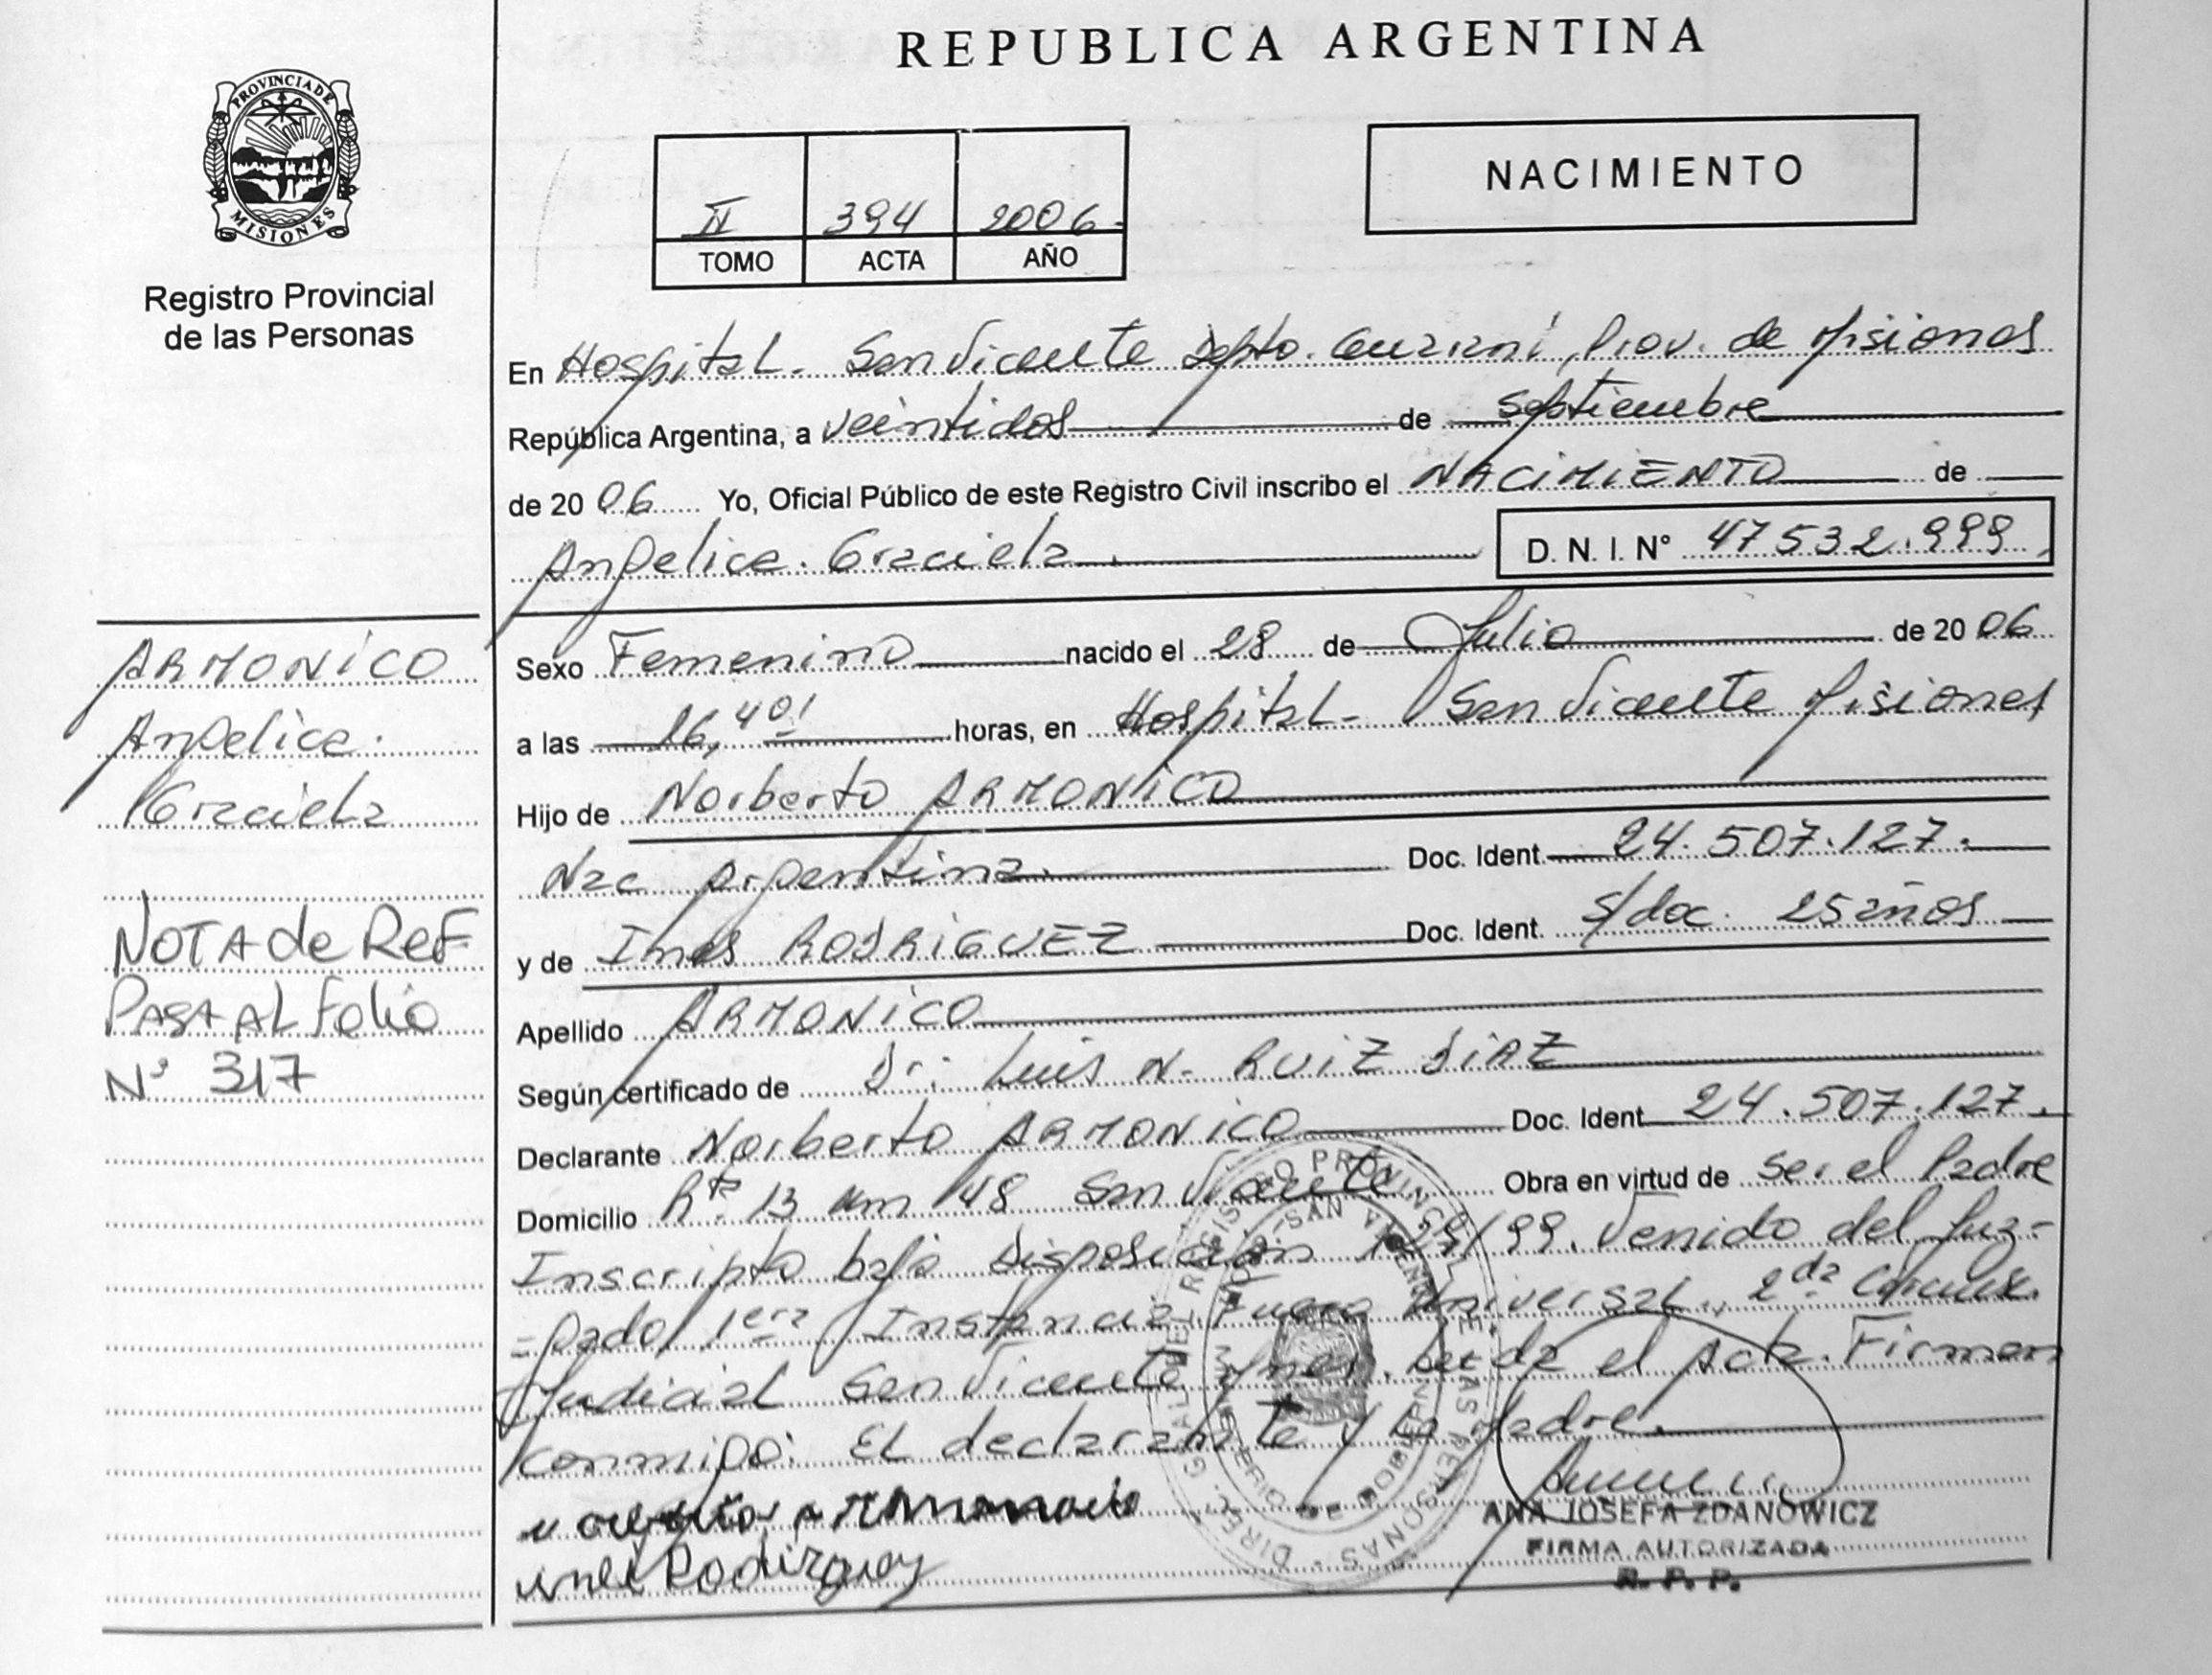 REPUBLICA ARGENTINA
PROVINCIA DE
MISIONES
Registro Provincial
de las Personas
II 394 2006
TOMO ACTA AÑO
NACIMIENTO
En Hospital - San Vicente Dpto. Guarani, Prov. de Misiones
República Argentina, a veintidos de septiembre
de 2006 Yo, Oficial Público de este Registro Civil inscribo el NACIMIENTO de
Angelica Graciela D. N. I. N° 47532.999
Sexo Femenino nacido el 28 de Julio de 2006
a las 16,40 horas, en Hospital - San Vicente Misiones
Hijo de Norberto ARMONICO
Nac Argentina Doc. Ident. 24.507.127.
y de Ines RODRIGUEZ Doc. Ident. s/doc. 25 años
Apellido ARMONICO
Según certificado de Dr. Luis N. RUIZ DIAZ
Declarante Norberto ARMONICO Doc. Ident 24.507.127.
Domicilio Rta 13 km 48 San Vicente Obra en virtud de ser el Padre
Inscripto bajo Disposicion /99. Venido del Juz-
=gado 1era Instancia, Fuero Universal, 2da Circuns.
Judicial San Vicente Mnes. Leida el Acta. Firman
conmigo: El declarante y la Madre.
ANA JOSEFA ZDANOWICZ
FIRMA AUTORIZADA
R. P. P.
ARMONICO
Angelica
Graciela
NOTA de REF
PASA AL Folio
N° 317